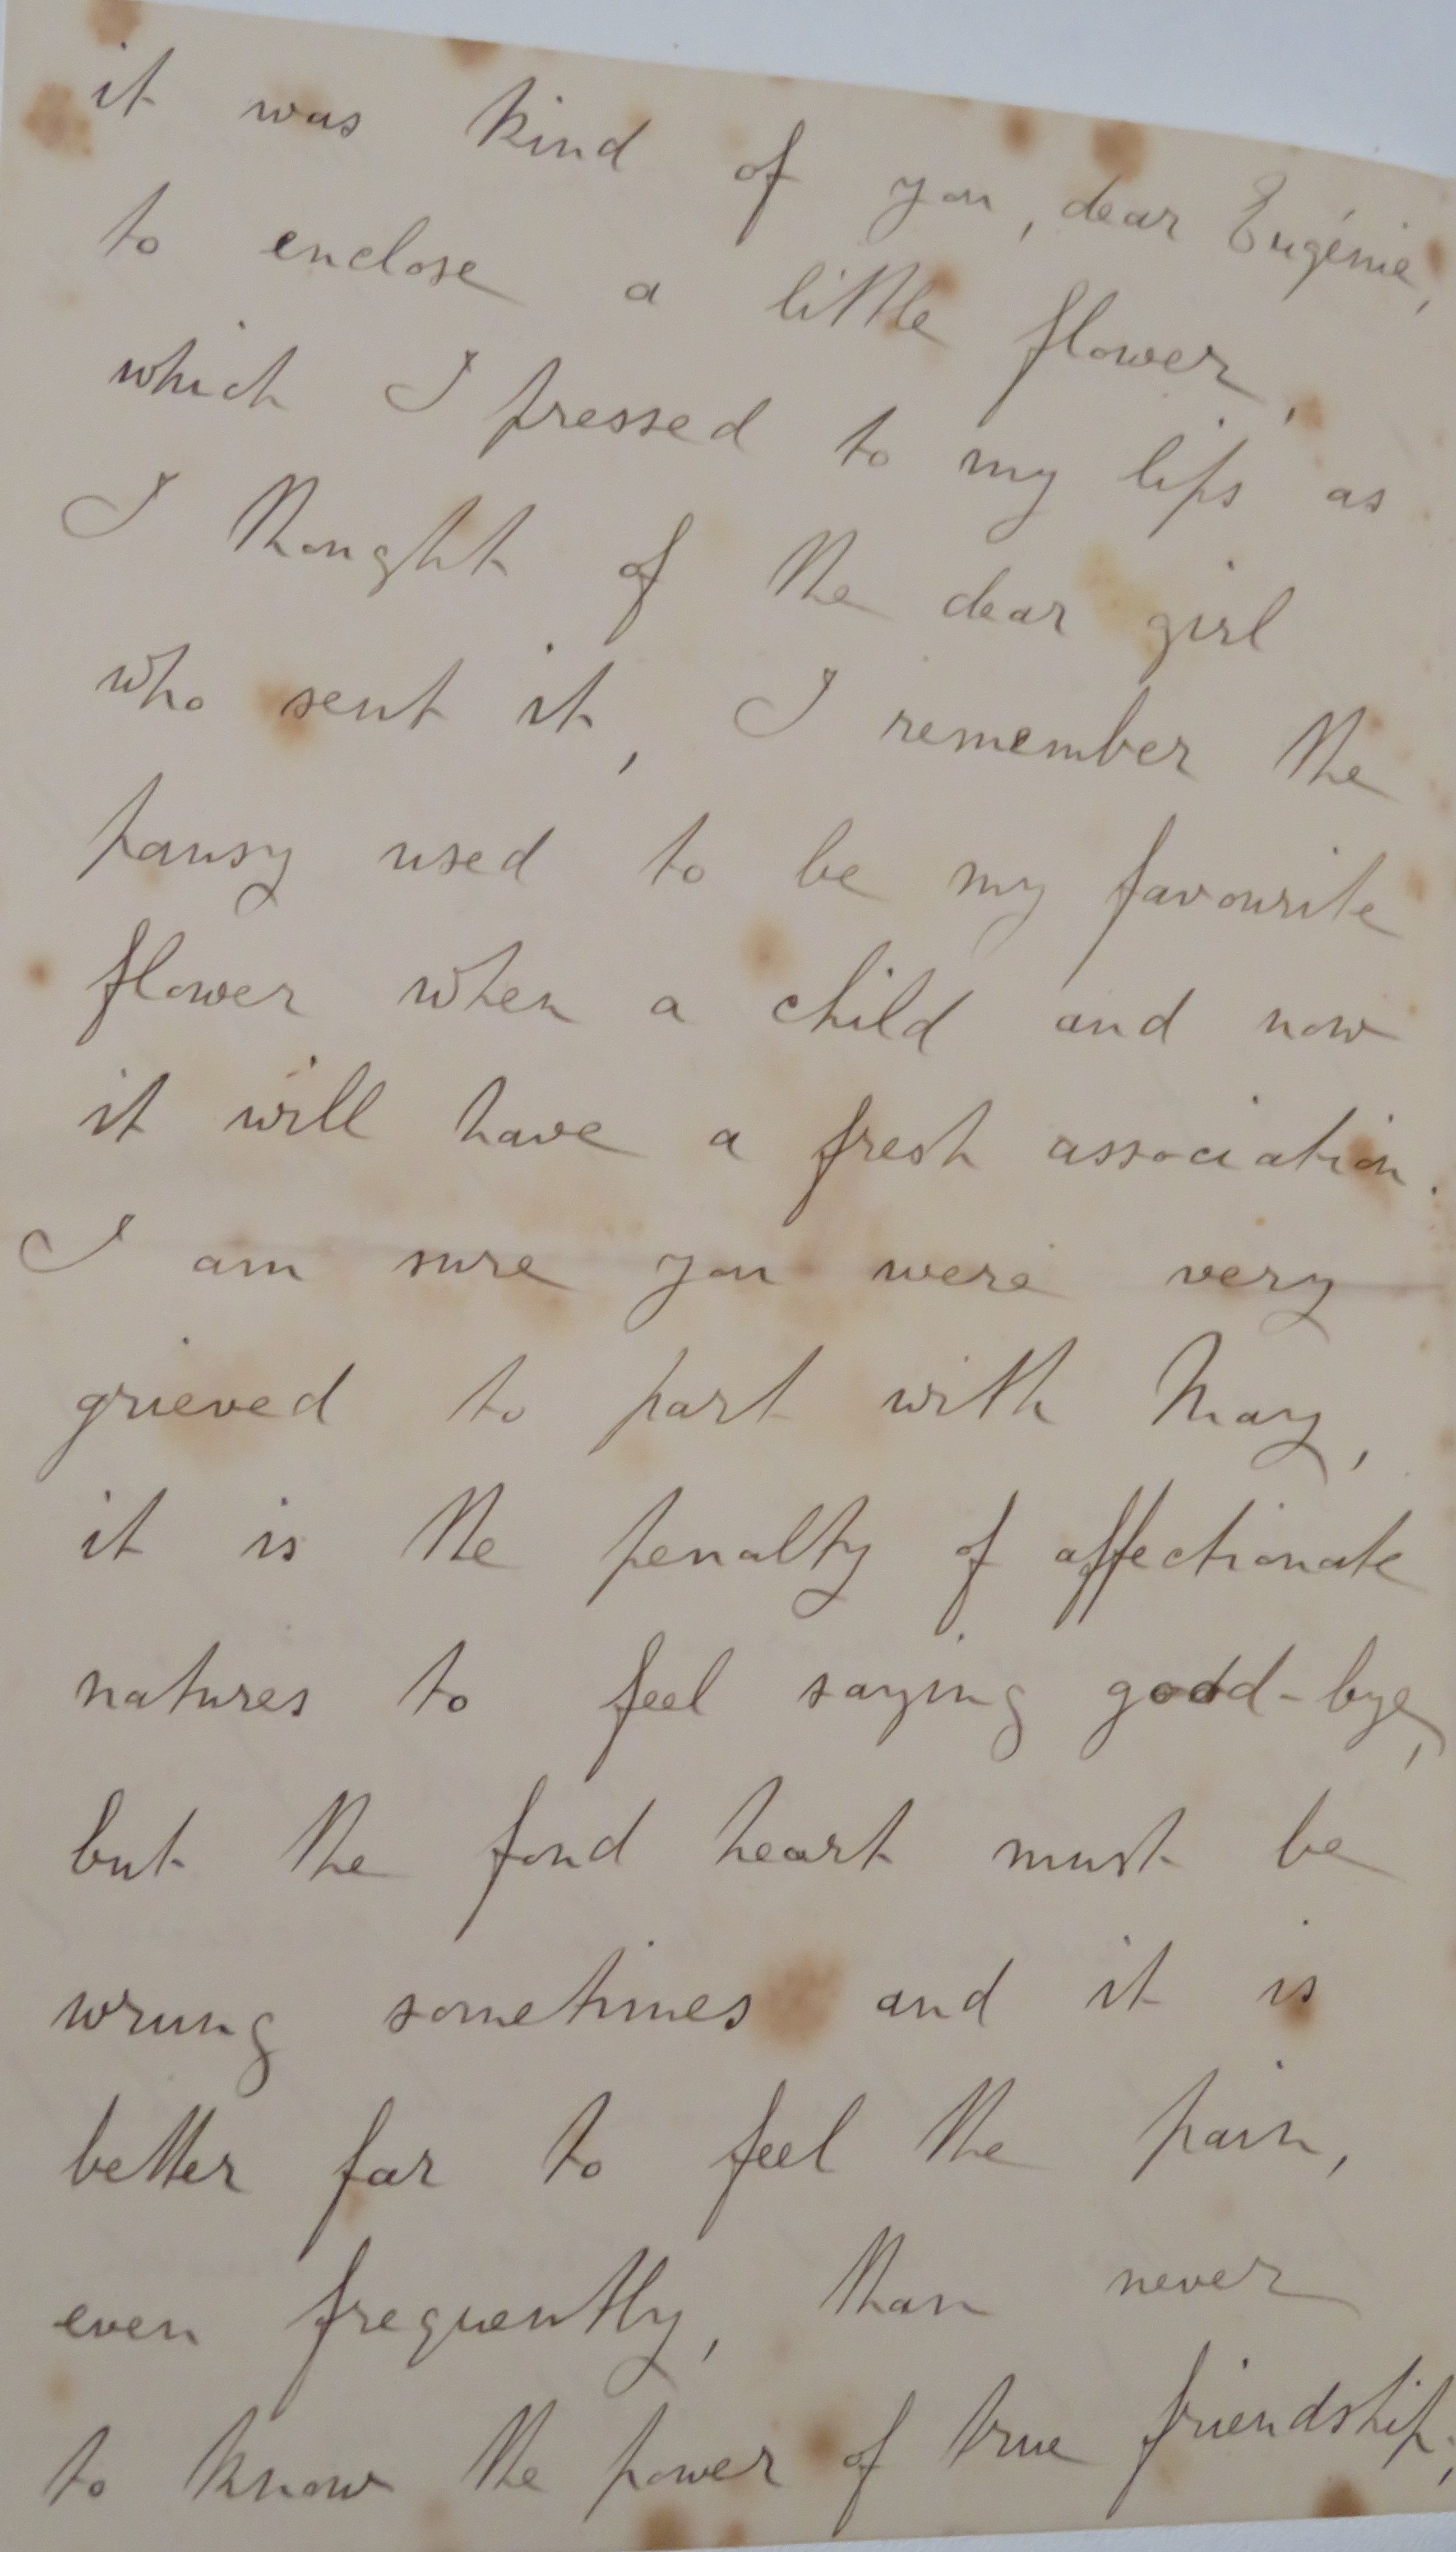 it was kind of you, dear Eugénie,
to enclose a little flower,
which I pressed to my lips as
I thought of the dear girl
who sent it, I remember the
pansy used to be my favourite
flower when a child and now
it will have a fresh association.
I am sure you were very
grieved to part with May,
it is the penalty of affectionate
natures to feel saying good-bye,
but the fond heart must be
wrung sometimes and it is
better far to feel the pain,
even frequently, than never
to know the power of true friendship,